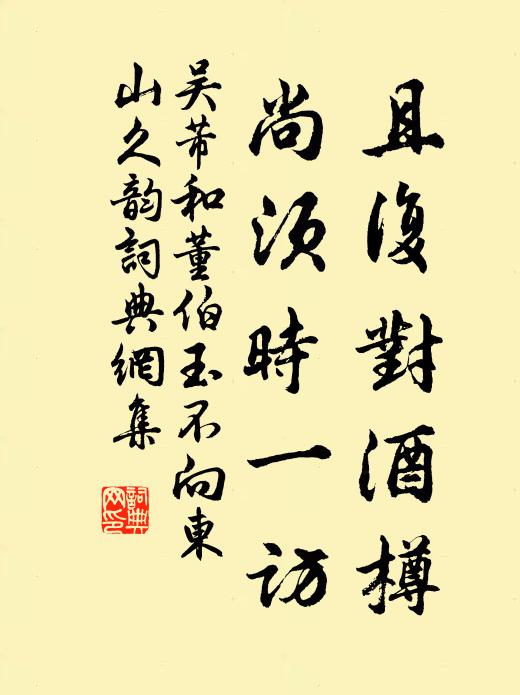 且復對酒樽
尚須時一訪
吴芾和董伯玉不向東
山久韵詞典網集
詞典网印